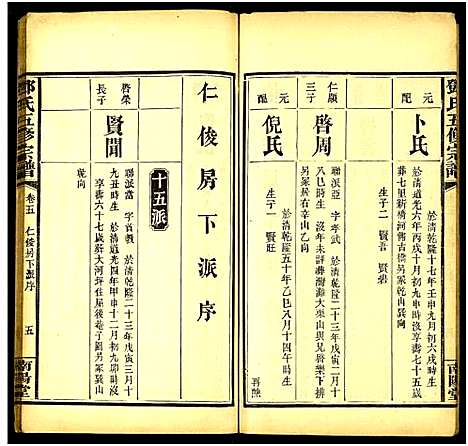 鄧氏五修宗譜
元配
卜氏
於清乾隆十七年壬申九月初六戌時生
於清道光六年丙戌十月初九申時沒享壽七十五歲
葬七里新橋河舊古橋另冢乾山巽向
生子二 賢吾 賢
仁顯三子
啓周
聯派亞 字孝武 於清乾隆二十三年戊寅二月十
八巳時生 沒年未詳葬灣灘大栗山與兄啓
另冢辰山戌向
元配
倪氏
於清乾隆五十年乙巳八月十四午時生
生子一 賢旺
再醮
仁俊房下派序
十五派
啓榮長子
賢聞
聯派富 字百敎 於清乾隆二十三年戊寅三月十
九丑時生 於清道光四年甲申十二月初九卯時沒
享壽六十七歲葬大河坪住屋後巷子園另冢巽山
乾向
鄧氏五修宗譜
卷五 仁俊房下派序
五
南陽堂
南陽堂